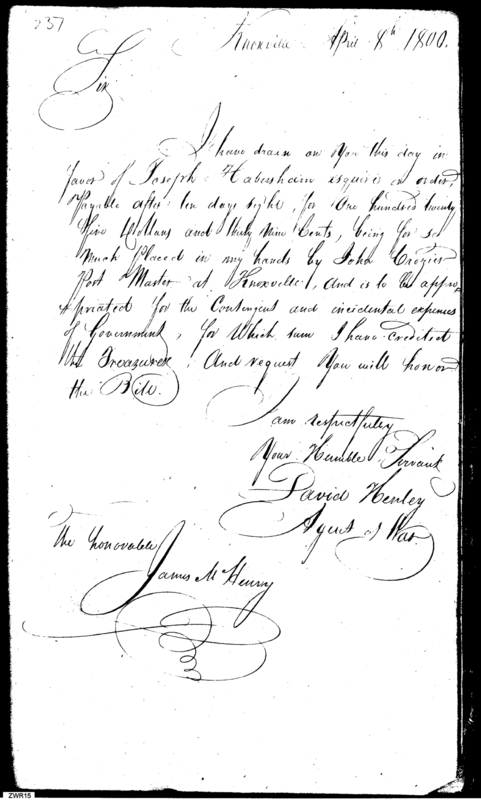 237
Knoxville April 8th 1800.
Sir
I have drawn on You this day in
favor of Joseph Habersham esquire or order,
Payable after ten days sight, for One hundred twenty
five Dollars and thirty nine Cents, being for so
Much Placed in my hands by John Crozier
Post Master at Knoxville, And is to be appro-
-priated for the Contingent and incidental expenses
of Government, for Which sum I have credited
the Treasurer. And request You will honor
the Bill.
I am respectfuly
Your Humble Servant
David Henley
Agent of War
The honorable
James McHenry
ZWR15